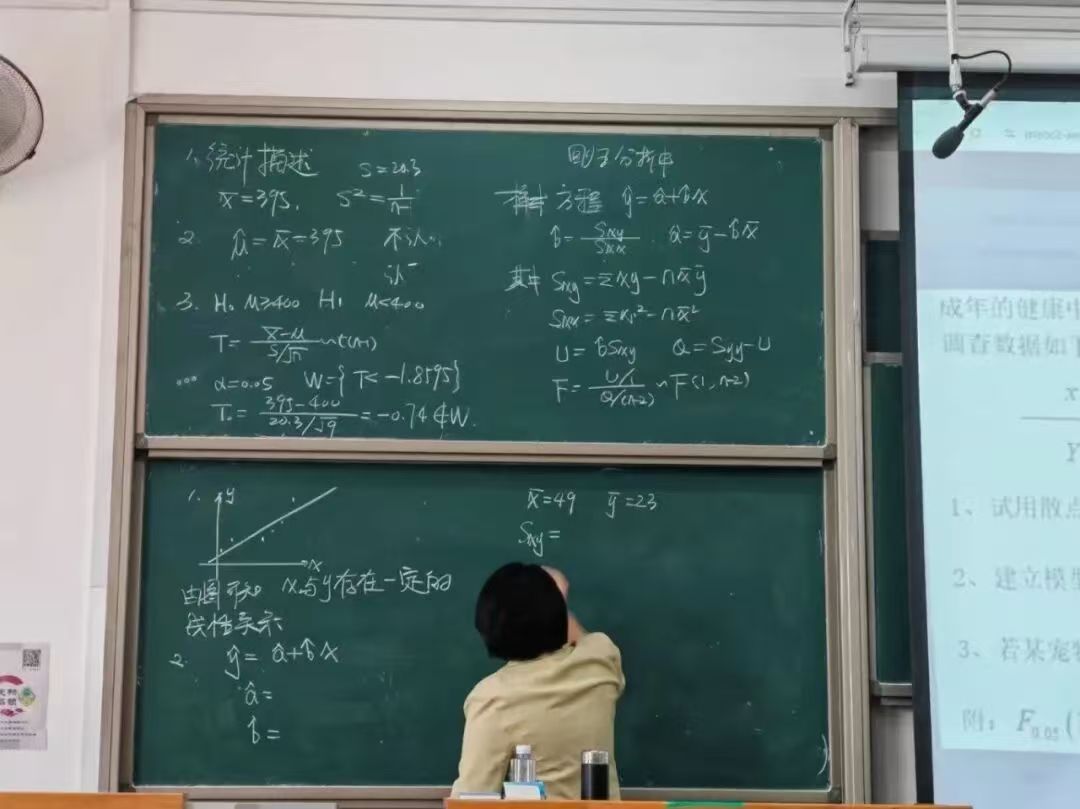 1. 统计描述 S=20.3
x̄=395, S²=1/n-1
2. μ̂=x̄=395 不认…
认
3. H₀ μ≥400 H₁ μ<400
T=(x̄-μ)/(S/√n)~t(n-1)
α=0.05 W={T<-1.8595}
T₀=(395-400)/(20.3/√9)=-0.74∉W.
回归分析中
方程 ŷ=â+b̂x
b̂=Sxy/Sxx â=ȳ-b̂x̄
其中 Sxy=Σxy-nx̄ȳ
Sxx=Σxᵢ²-nx̄²
U=b̂Sxy Q=Syy-U
F=(U/1)/(Q/(n-2))~F(1,n-2)
1. y
x
由图可知 x与y存在一定的
线性关系
2. ŷ=â+b̂x
â=
b̂=
x̄=49 ȳ=23
Sxy=
成年的健康中
调查数据如下
x
Y
1、试用散点
2、建立模型
3、若某宠物
附：F₀.₀₅(